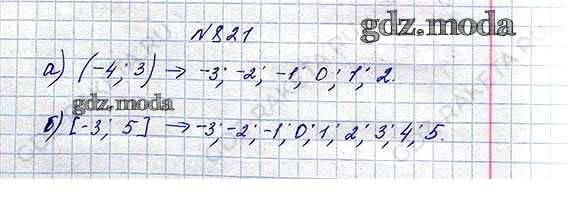 №821
gdz.moda
а) (-4; 3) → -3; -2; -1; 0; 1; 2.
gdz.moda
б) [-3; 5] → -3; -2; -1; 0; 1; 2; 3; 4; 5.